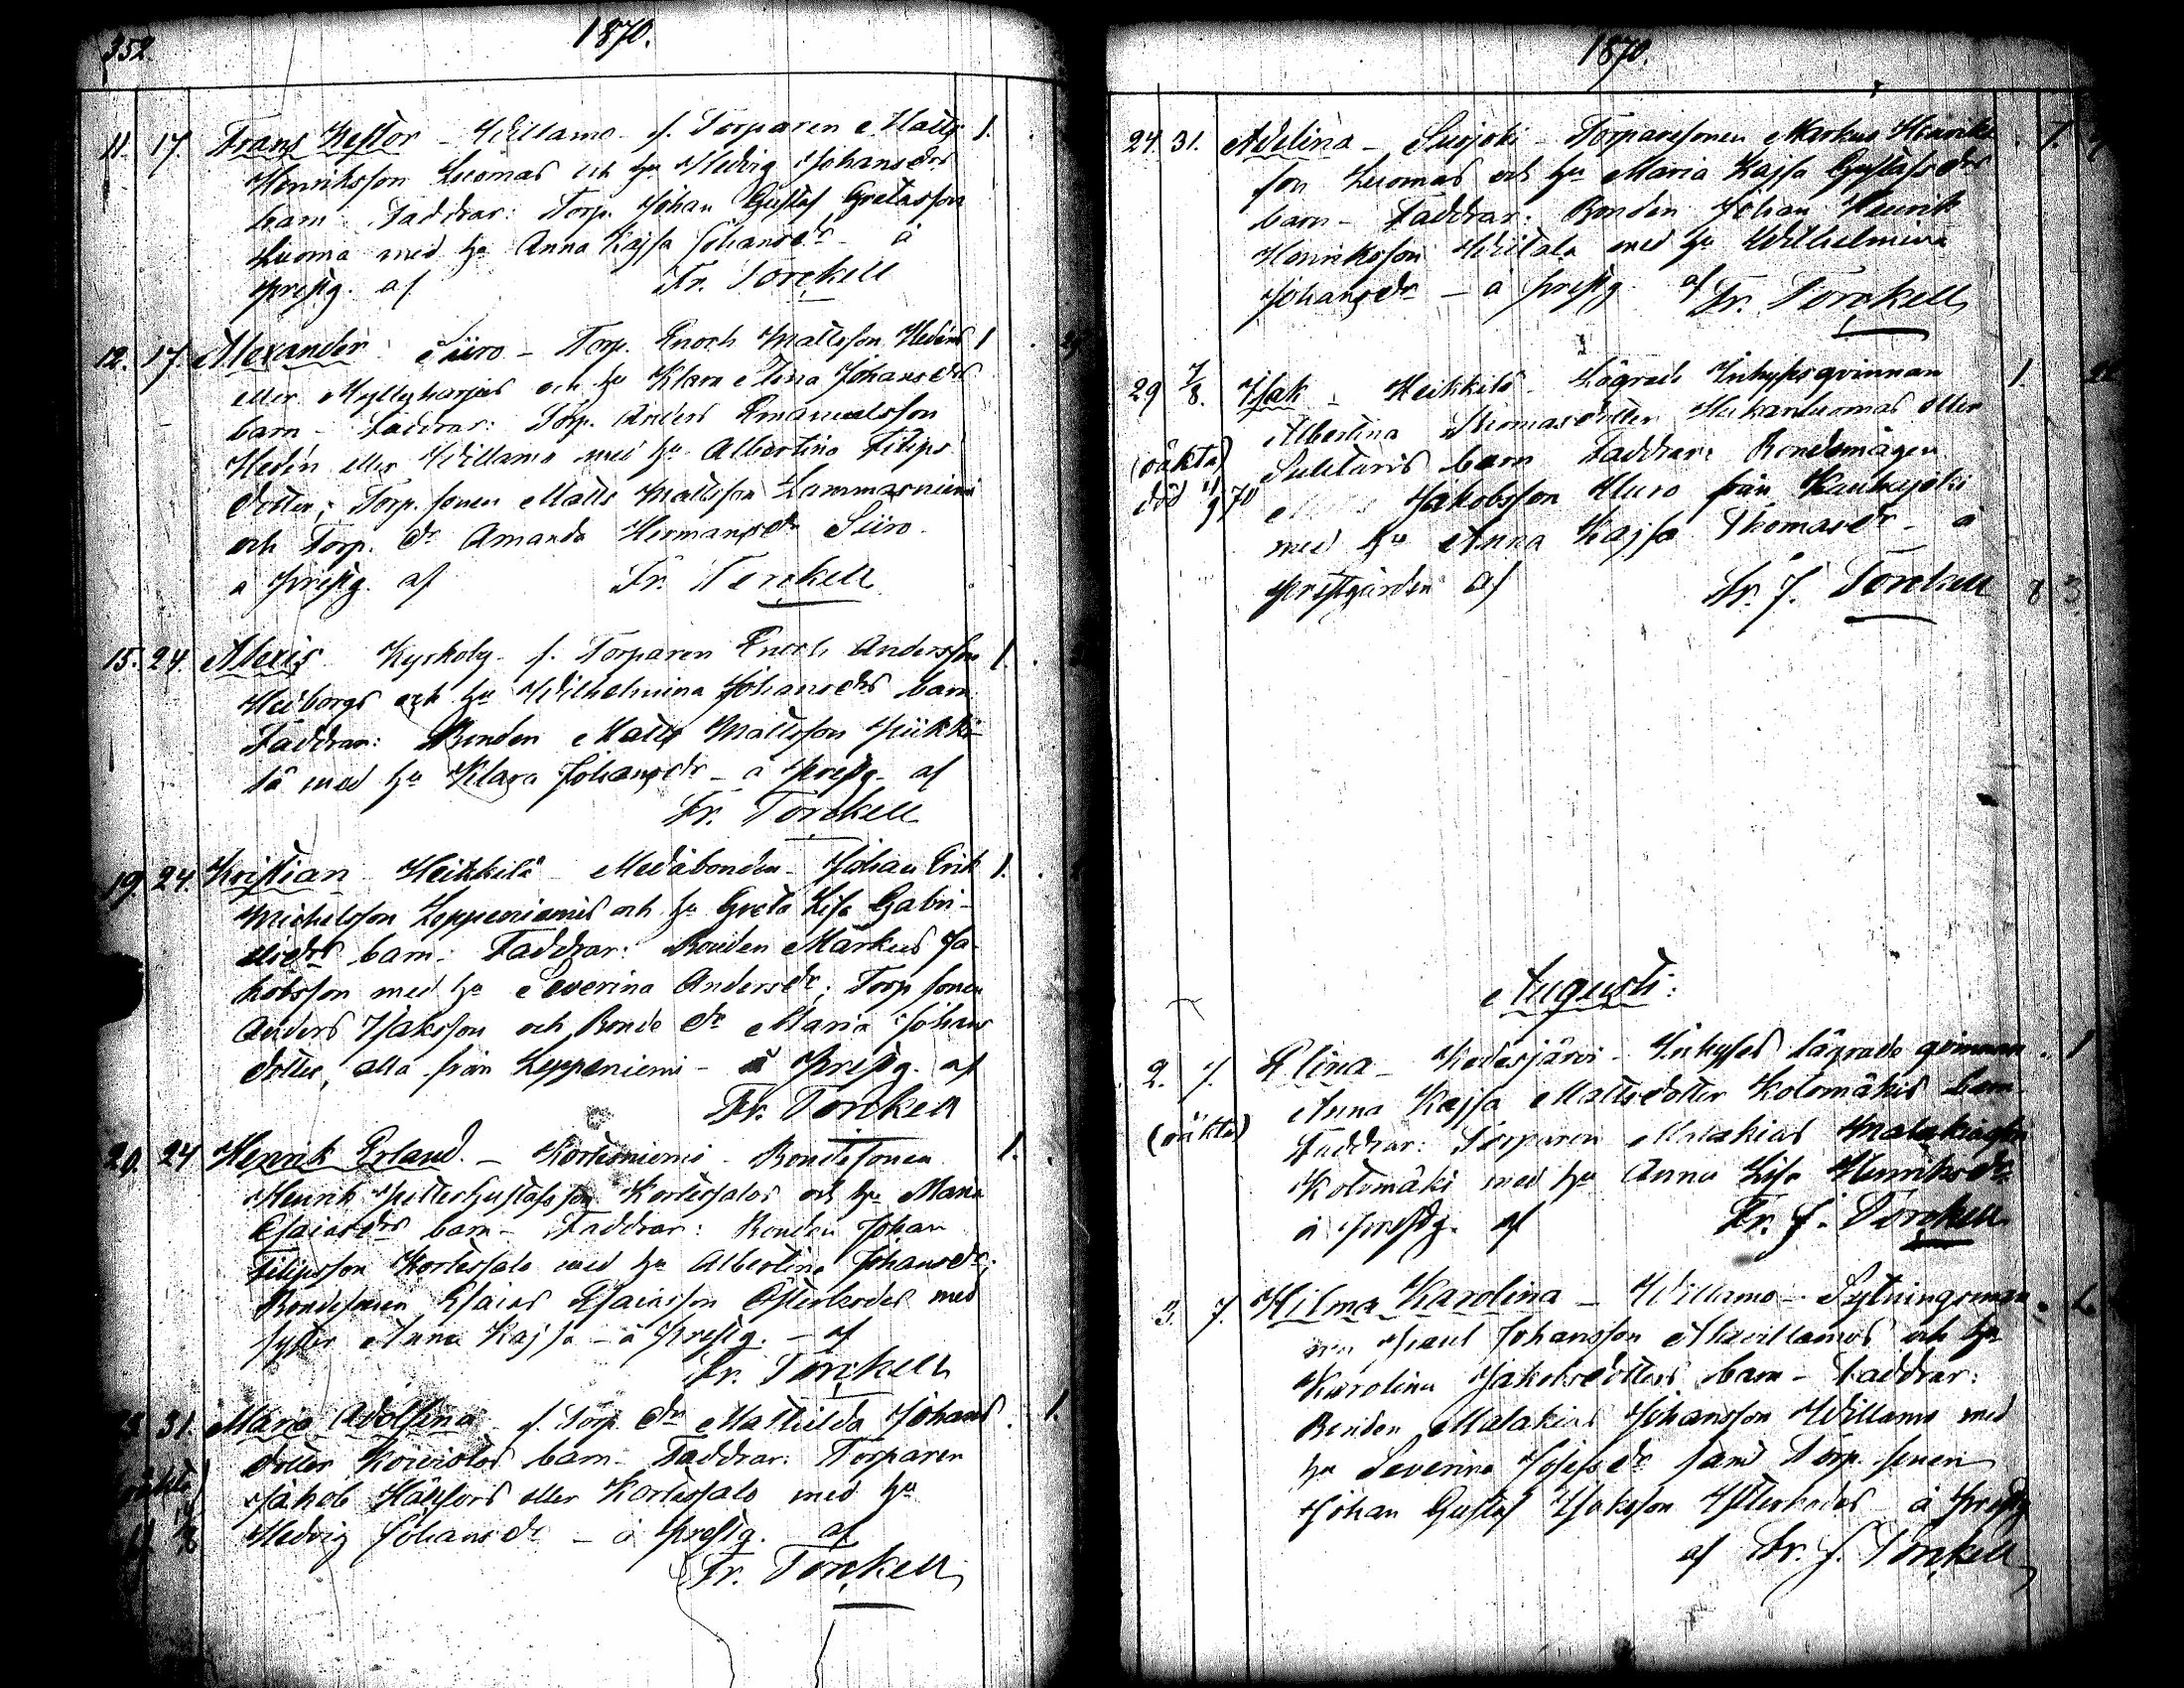 352.
1870.
11. 17. Frans Nestor - Willamo - f. Torparen Matts 1.
Henriksson Luomas och hu Hedvig Johansdrs
barn - Faddrar: Torp. Johan Gustaf Gretasson
Luoma med hu Anna Kajsa Johansdr - å
prestg. af Fr. Torckell
12. 17. Alexander Siiro - Torp. Enoch Mattsson Hedéns 1
eller Myllyharjus och hu Klara Stina Johansdrs
barn - Faddrar: Torp. Anders Emanuelsson
Hedén eller Willamo med hu Albertina Filips
dotter; Torp. sonen Matts Mattsson Lammasniemi
och Torp. dr Amanda Hermansdr Siiro -
å prestg. af Fr. Torckell
15. 24. Alexis Kyrkoby - f. Torparen Enoch Andersson 1.
Hedborgs och hu Wilhelmina Johansdrs barn
Faddrar: Bonden Matts Mattsson
lä med hu Klara Johansdr - å prestg. af
Fr. Torckell
19. 24. Kristian - Heikkilä - Medåbonden - Johan Erik 1.
Michelsson Leppeniemis och hu Greta Lisa Gabri-
elsdrs barn - Faddrar: Bonden Markus Ja-
kobsson med hu Severina Andersdr; Torp. sonen
Anders Isaksson och Bonde dr Maria Johans
dotter, alla från Leppeniemi - å prestg. af
Fr. Torckell
20. 24 Henrik Erland - Kortesniemi - Bondesonen 1.
Henrik Petter Gustafsson Kortessalos och hu Maria
Esaiasdrs barn - Faddrar: Bonden Johan
Filipsson Kortessalo med hu Albertina Johansdr;
Bondesonen Esaias Esaiasson med
syster Anna Kajsa - å prestg. - af
Fr. Torckell
31. Maria Adolfina f. Torp. dr Mathilda Johans 1.
dotter Koivistos barn - Faddrar: Torparen
Jakob eller Kortessalo med hu
Hedvig Johansdr - å prestg. af
Fr. Torckell
1870.
24. 31. Adelina - Susijoki - Torparesonen Markus Henriks 1.
son Luomas och hu Maria Kajsa Gustafsdrs
barn - Faddrar: Bonden Johan Henrik
Henriksson Wiitala med hu Wilhelmina
Johansdr - å prestg. af Fr. Torckell
29 7/8. Isak - Heikkilä - Lägrade Inhysesqvinnan 1.
Albertina Thomasdotter eller
(oäkta) barn Faddrar: Bondemågen
död Jakobsson Uuro från Kauhajoki
med hu Anna Kajsa Thomasdr - å
prestgården af Fr. J. Torckell 8 3.
Augusti:
2. 7. Elina - Kodesjärvi - Inhyses lägrade qvinnan 1
Anna Kajsa Mattsdotter Kolomäkis barn
(oäkta) Faddrar: Torparen Malakias Malakiasson
Kolomäki med hu Anna Lisa Henriksdr
å prestg. af Fr. J. Torckell
3. 7. Hilma Karolina - Willamo - Sytningsman
Johansson Alavillamos och hu
Karolina Jakobsdotters barn - Faddrar:
Bonden Malakias Johansson Willamo med
hu Severina Josefsdr samt Torp. sonen
Johan Gustaf Isaksson å prestg
af Fr. J. Torckell